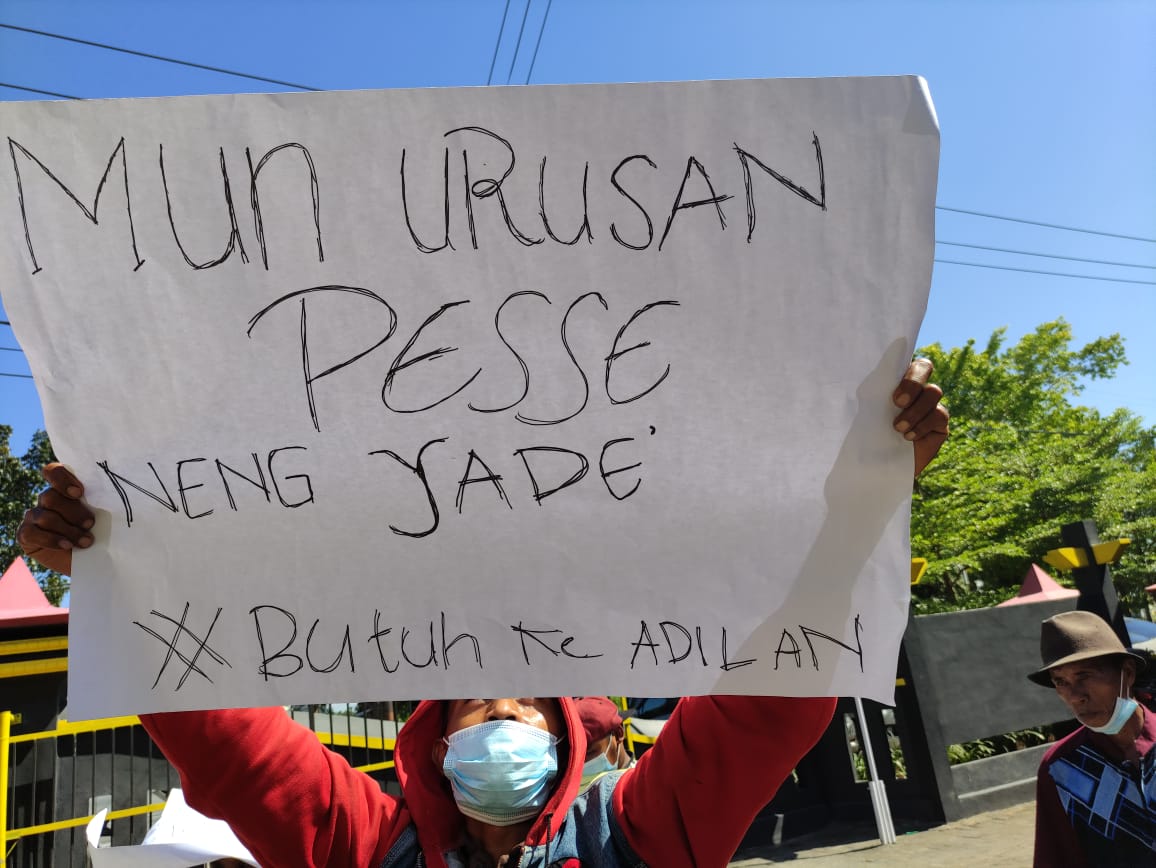 MUN URUSAN
PESSE
NENG YADE'
# Butuh Ke ADILAN